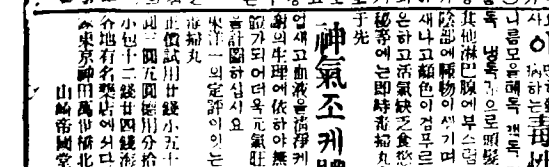 독 냉독가으로頭髮
其他淋巴腺에부스럼
陰部에腫物이생기며
새나고顔色이검푸르
은하고活氣缺乏食慾
秘等에는即時毒掃丸
于先
神氣조케
업새고血液을淸净케
謝의生理에依하야無
體가되어더욱元氣旺
을計圖하십시요
東洋一의定評이잇는
毒掃丸
正價試用廿錢小五十
圓三圓五圓德用分拾
小包十二錢廿四錢海
各地有名藥店에서다
東京神田萬世橋北
山崎帝國堂